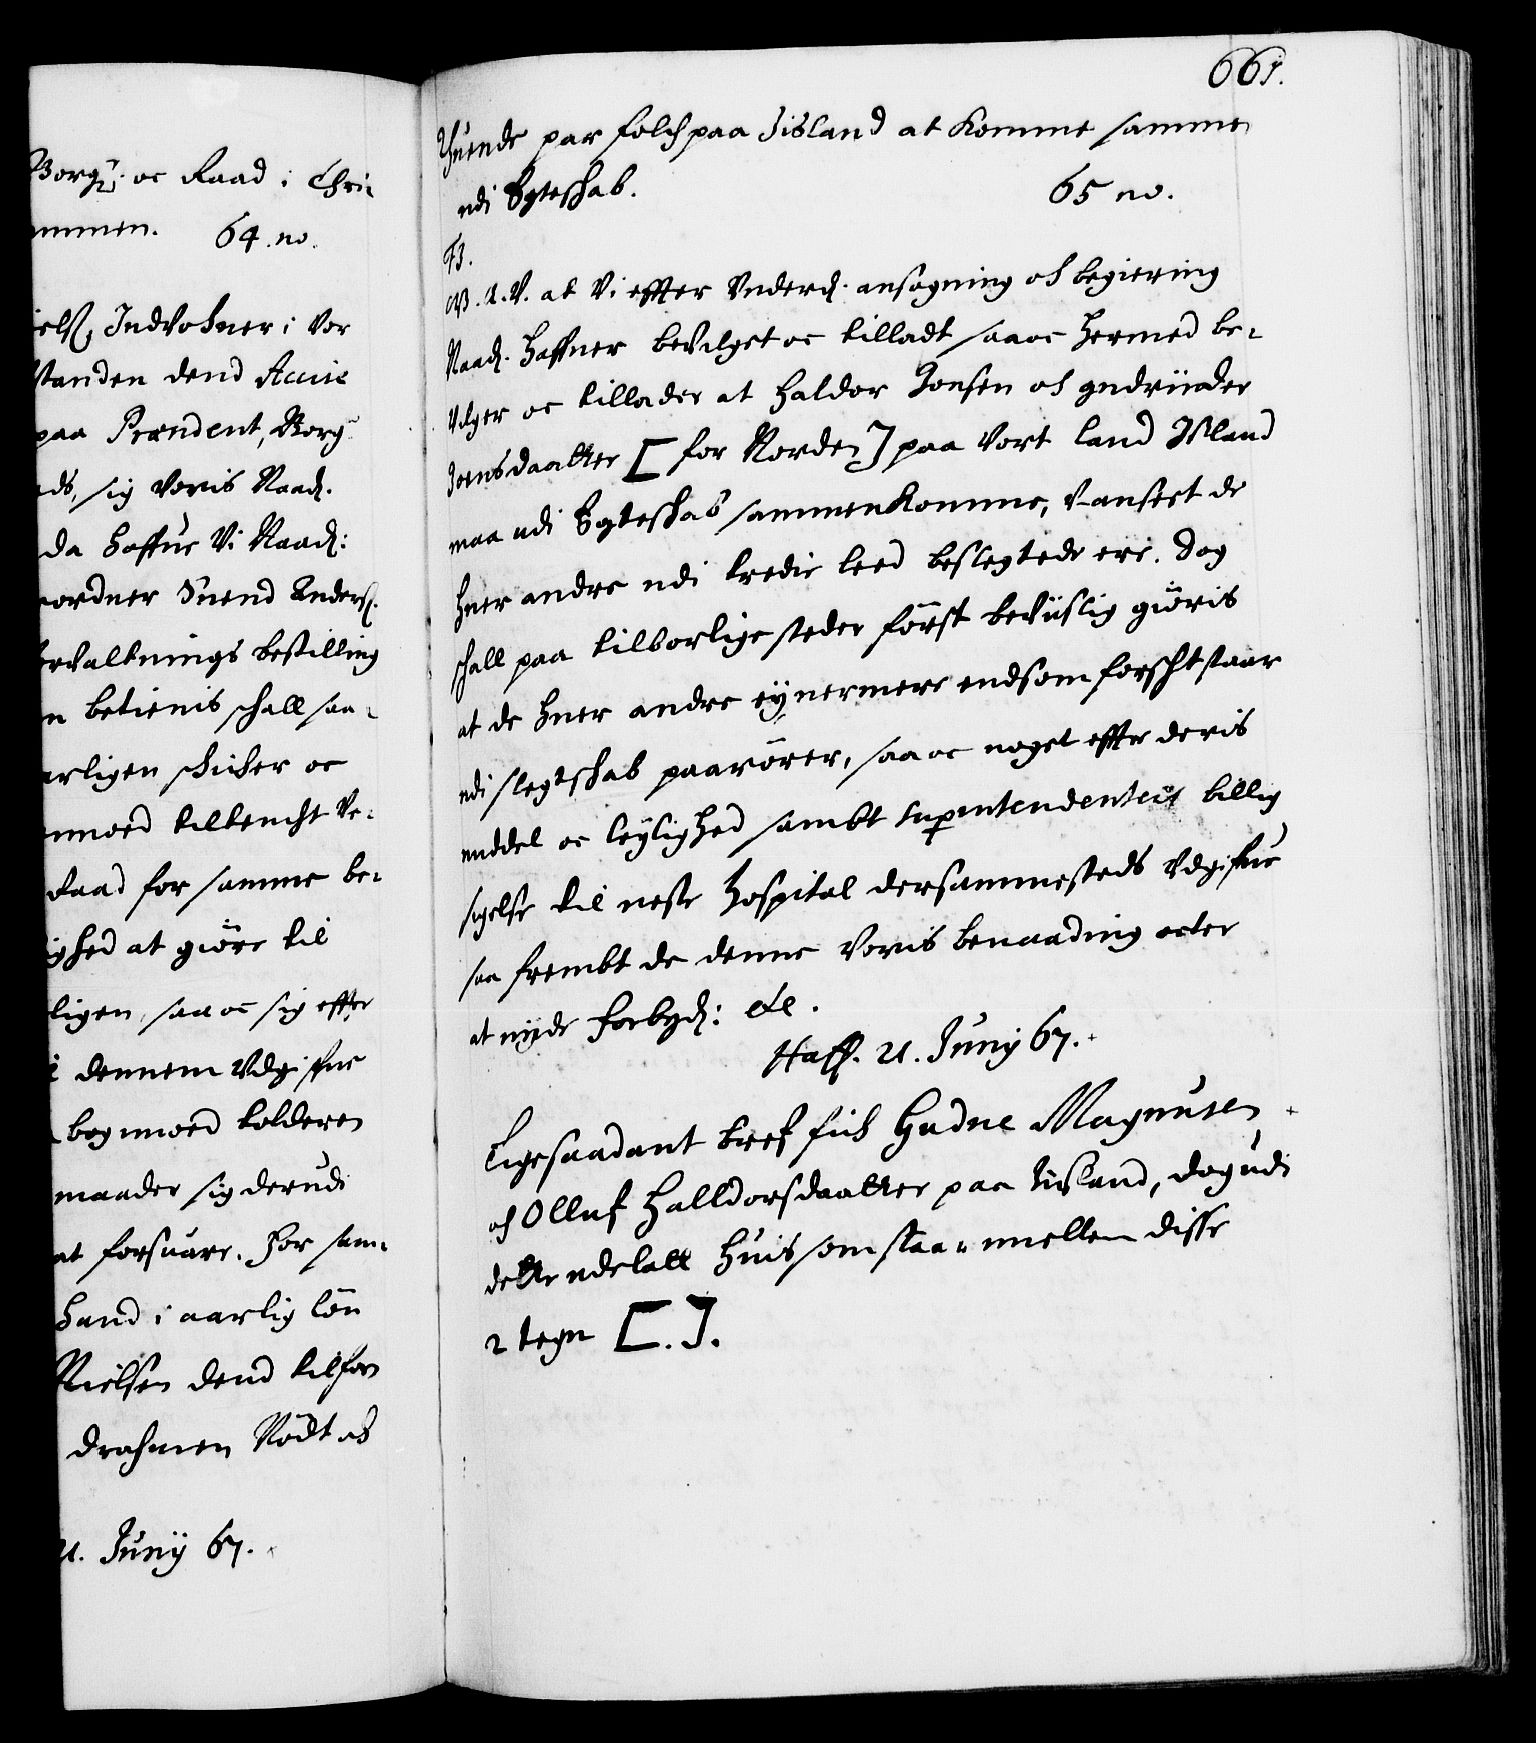 Borg: oc Raad i Chri-
ammen. 64. no.
iels, Indvohner i Vor
standen dend Accise
paa Præsident, Borg
ds, sig Voris Naad.
da haffue Vi Naad:
ordner Suend Anders.
rvaltnings bestilling
n betienis schall saa-
arligen schicher oc
nmoed tiltencht Ve-
Raad for samme be-
ighed at giöre til
ligen, saa oc sig effter
dennem Udgiffue
bogmoed tolderen
maader sig derudi
at forsuare. For sam-
hand i aarlig lön
Nielsen dend tilforn
drahmen Nödt af
21. Junij 67.
661.
Thuende par folch paa Iisland at komme sammen
udi Egteschab. 65 no.
F3.
G. A. V. at Vi effter Underd. ansøgning och begiering
Naad. haffuer bevilget oc tilladt saa oc hermed be-
vilger oc tillader at Haldor Jonsen och Gudrüder
Joensdaatter [for Norden] paa Vort land Iisland
maa udi Egteschab sammenkomme, V-anseet de
huer andre udi tredie leed beslegtede ere. Dog
schall paa tilborlige steder först beviislig giöris
at de huer andre ey nermere end som forschtstaar
udi slegtschab paarörer, saa oc noget effter deris
middel oc leylighed sambt superintendenteis billig
sigelse til neste Hospital dersammesteds Udgiffue
saa frembt de denne Voris benaading acter
at nyde Forbyd: etc.
Haff. 21. Junij 67.
Ligesaadant bref fich Gudne Magnusen
och Olluf Halldorsdaatter paa Iisland, dog udi
dette udelatt huis som staar imellem disse
2 tegn [.].